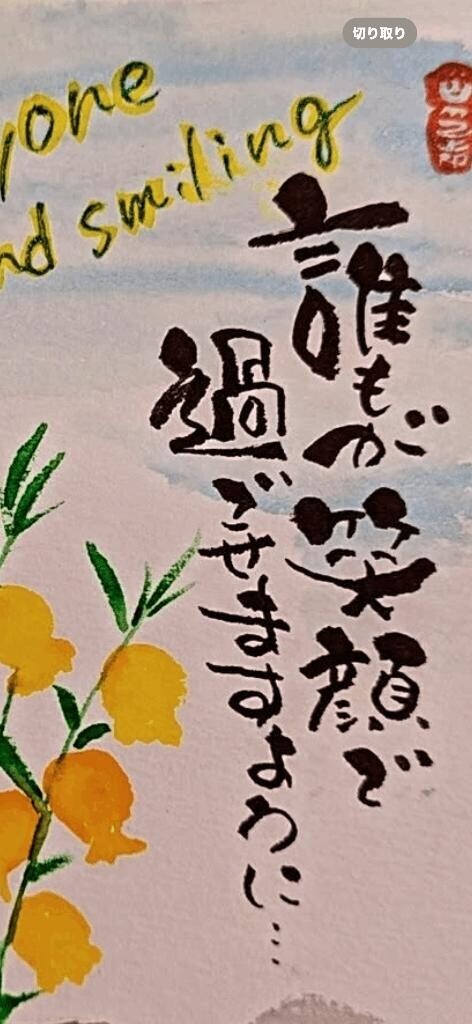 切り取り
yone
nd smiling
誰もが笑顔で
過ごせますように…